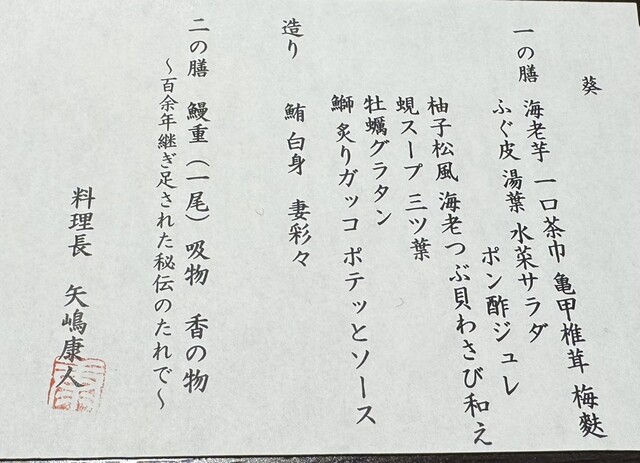 葵
一の膳 海老芋 一口茶巾 亀甲椎茸 梅麩
ふぐ皮 湯葉 水菜サラダ
ポン酢ジュレ
柚子松風 海老つぶ貝わさび和え
蜆スープ 三ツ葉
牡蠣グラタン
鰤 炙りガッコ ポテッとソース
造り 鮪 白身 妻彩々
二の膳 鰻重(一尾) 吸物 香の物
〜百余年継ぎ足された秘伝のたれで〜
料理長 矢嶋康人